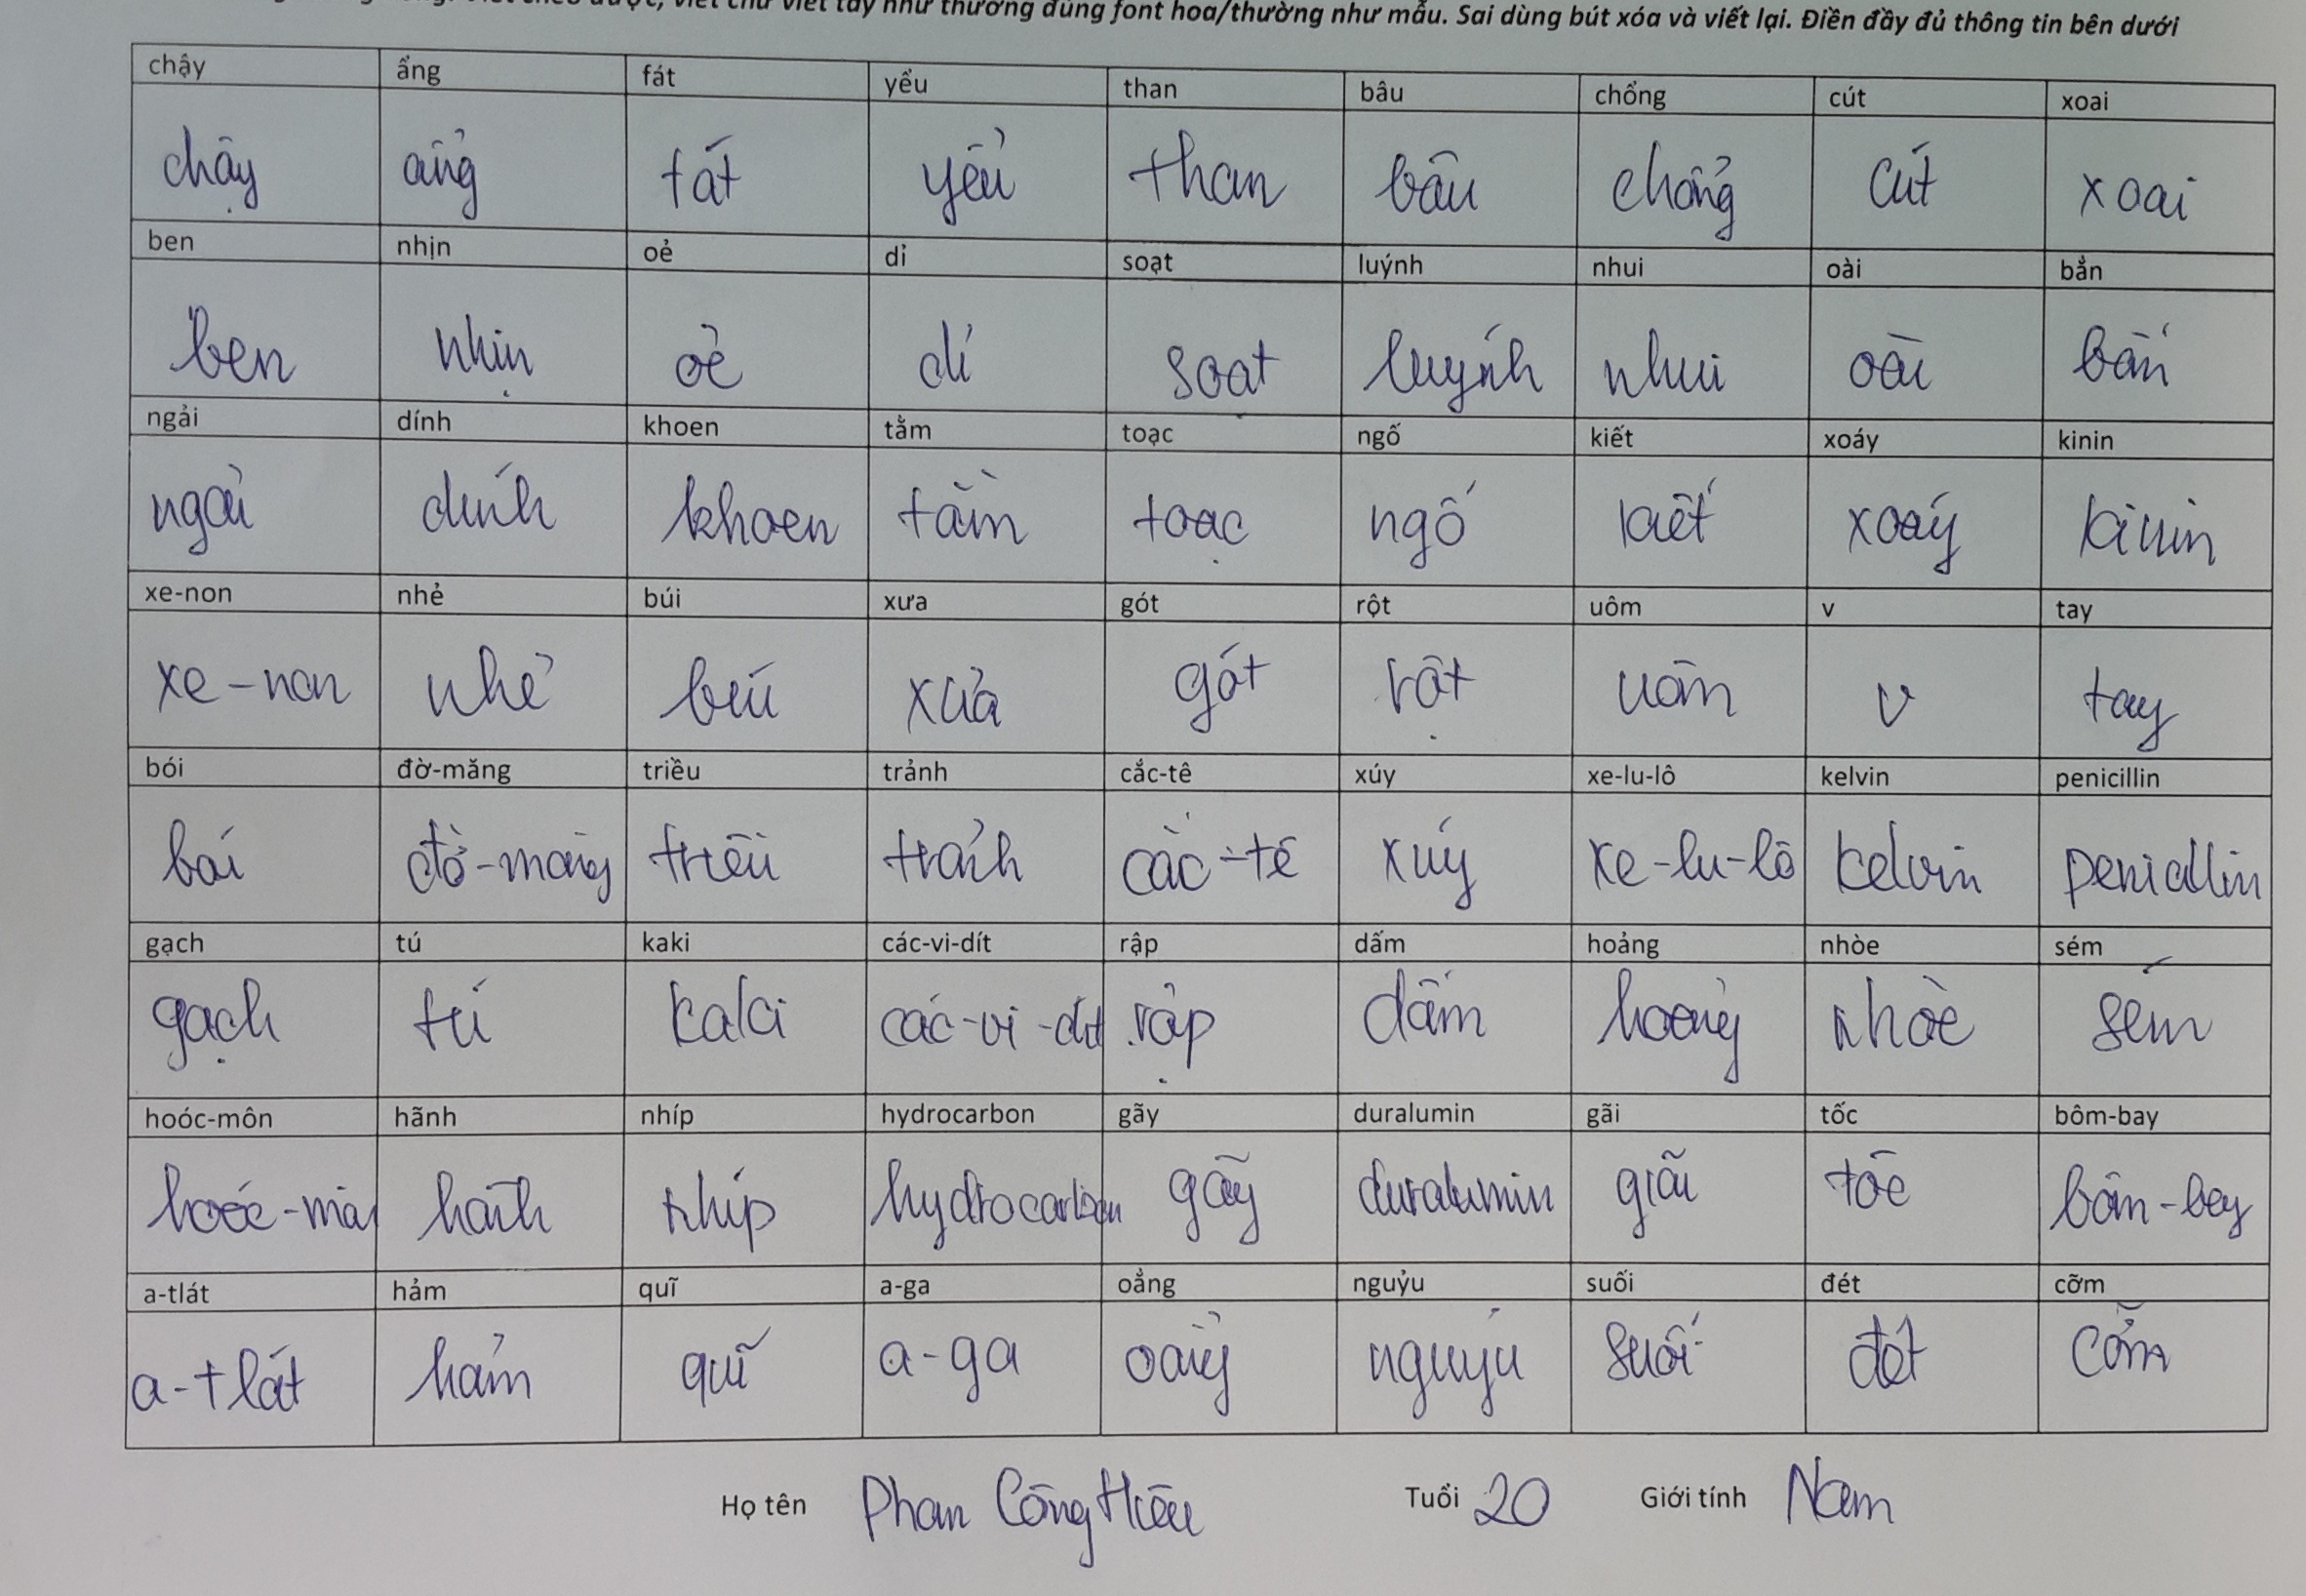 như thường đúng font hoa/thường như mẫu. Sai dùng bút xóa và viết lại. Điền đầy đủ thông tin bên dưới
chậy ẩng fát yểu than bâu chổng cút xoai
chậy ẩng fát yểu than bâu chổng cút xoai
ben nhịn oẻ dỉ soạt luýnh nhui oài bẳn
ben nhịn oẻ dỉ soạt luýnh nhui oài bẳn
ngải dính khoen tằm toạc ngố kiết xoáy kinin
ngải dính khoen tằm toạc ngố kiết xoáy kinin
xe-non nhẻ búi xưa gót rột uôm v tay
xe-non nhẻ búi xưa gót rột uôm v tay
bói đờ-măng triều trảnh cắc-tê xúy xe-lu-lô kelvin penicillin
bói đờ-măng triều trảnh cắc-tê xúy xe-lu-lô kelvin penicillin
gạch tú kaki các-vi-dít rập dấm hoảng nhòe sém
gạch tú kaki các-vi-dít rập dấm hoảng nhòe sém
hoóc-môn hãnh nhíp hydrocarbon gãy duralumin gãi tốc bôm-bay
hoóc-môn hãnh nhíp hydrocarbon gãy duralumin giãi tốc bôm-bay
a-tlát hảm quĩ a-ga oẳng nguỷu suối đét cỡm
a-tlát hảm quĩ a-ga oẳng nguỷu suối đét cỡm
Họ tên Phan Công Hiếu Tuổi 20 Giới tính Nam